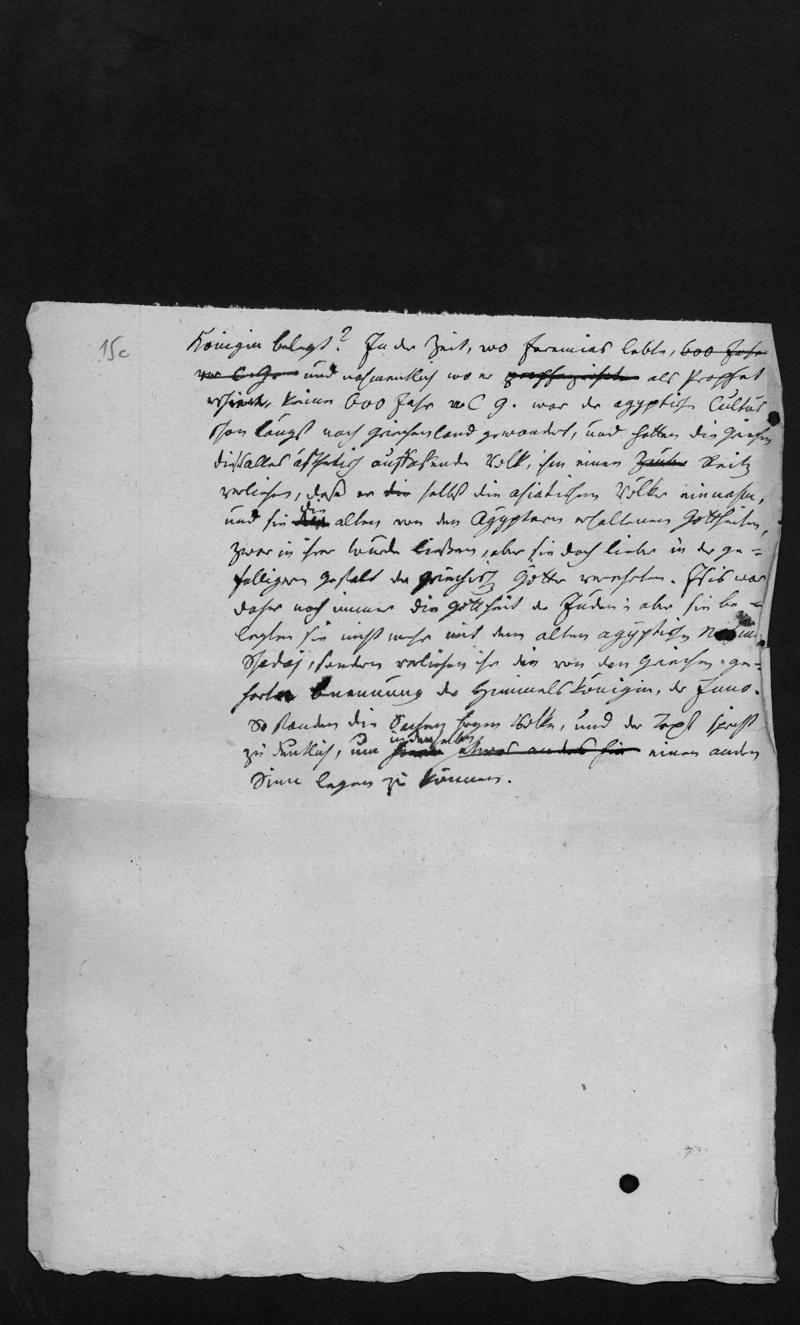 15c
Königin belegt? In der Zeit, wo Jeremias lebte, 600 Jahr
vor C. G. und nahmentlich wo er prophezeihete als Prophet
erschient, keine 600 Jahr v C G. war der agyptische Cultus
schon längst nach Griechenland gewandert, und hatten die Griechen
dieß alles ästhetisch auffassende Volk, ihm einen Reitz
verliehen, daß er die selbst die asiatischen Völker einnahm,
und sie die alten von den Ägyptern erhaltenen Gottheiten,
zwar in ihrer Würde ließen, aber sie doch lieber in der ge=
fälligern Gestalt der griechisch Götter verehrten. Isis war
daher noch immer die Gottheit der Juden; aber sie be=
legten sie nicht mehr mit dem alten agyptischen
Schadaj, sondern verliehen ihr die von den Griechen ge=
horte Benennung der Himmels Königin, der Juno.
So standen die Sachen Volke, und der Text spricht
zu deutlich, um in denselben etwas anders hin einen andern
Sinn legen zu können.